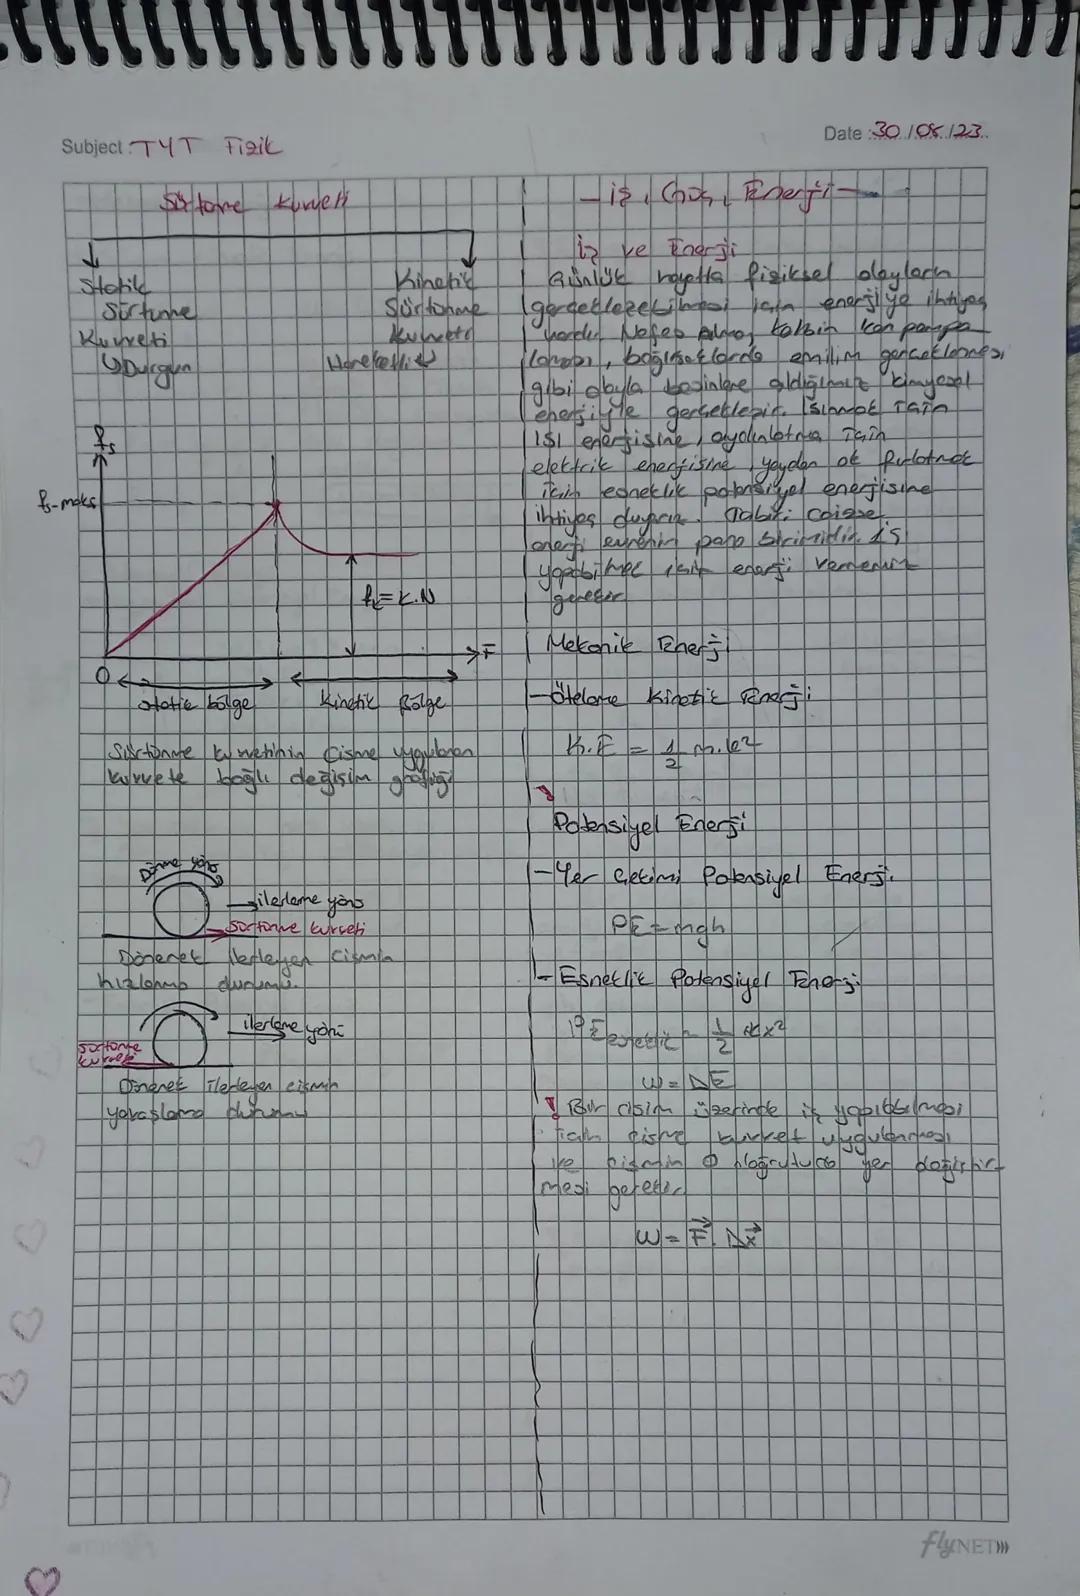 Subject : TYT Fizik
Date : 30/08/23
Sürtünme Kuvveti
Statik
Sürtünme
Kuvveti
↳Durgun
Kinetik
Sürtünme
Kuvveti
Hareketli
fs
fs-maks
fk = k.N
F
0
statik bölge
Kinetik Bölge
Sürtünme kuvvetinin Cisme uygulanan
kuvvete bağlı değişim grafiği
Dönme yönü
ilerleme yönü
Sürtünme kuvveti
Dönerek ilerleyen Cismin
hızlanma durumu.
ilerleme yönü
Sürtünme
kuvveti
Dönerek ilerleyen cismin
yavaşlama durumu
- İş, Güç, Enerji -
İş ve Enerji
Günlük hayatta fiziksel olayların
gerçekleşebilmesi için enerjiye ihtiyaç
vardır. Nefes alma, kalbin kan pompa
laması, bağırsaklarda emilim gerçekleşmesi
gibi olayla besinlere aldığımız kimyasal
enerjiyle gerçekleşir. Isınmak için
ısı enerjisine, aydınlatma için
elektrik enerjisine, yaydan ok fırlatmak
için esneklik potansiyel enerjisine
ihtiyaç duyarız.
enerji evrenin para birimidir. İş
yapabilmek için enerji vermemiz
gerekir
Mekanik Enerji
- Öteleme Kinetik Enerji
K.E = 1/2 m.v²
!
Potansiyel Enerji
- Yer Çekimi Potansiyel Enerji.
PE = mgh
- Esneklik Potansiyel Enerji
PEesneklik = 1/2 kx²
W = ΔE
! Bir cisim üzerinde iş yapılabilmesi
için cisme kuvvet uygulanması
ve cismin o doğrultuda yer değiştir
mesi gerekir.
W = F . Δx
flyNET